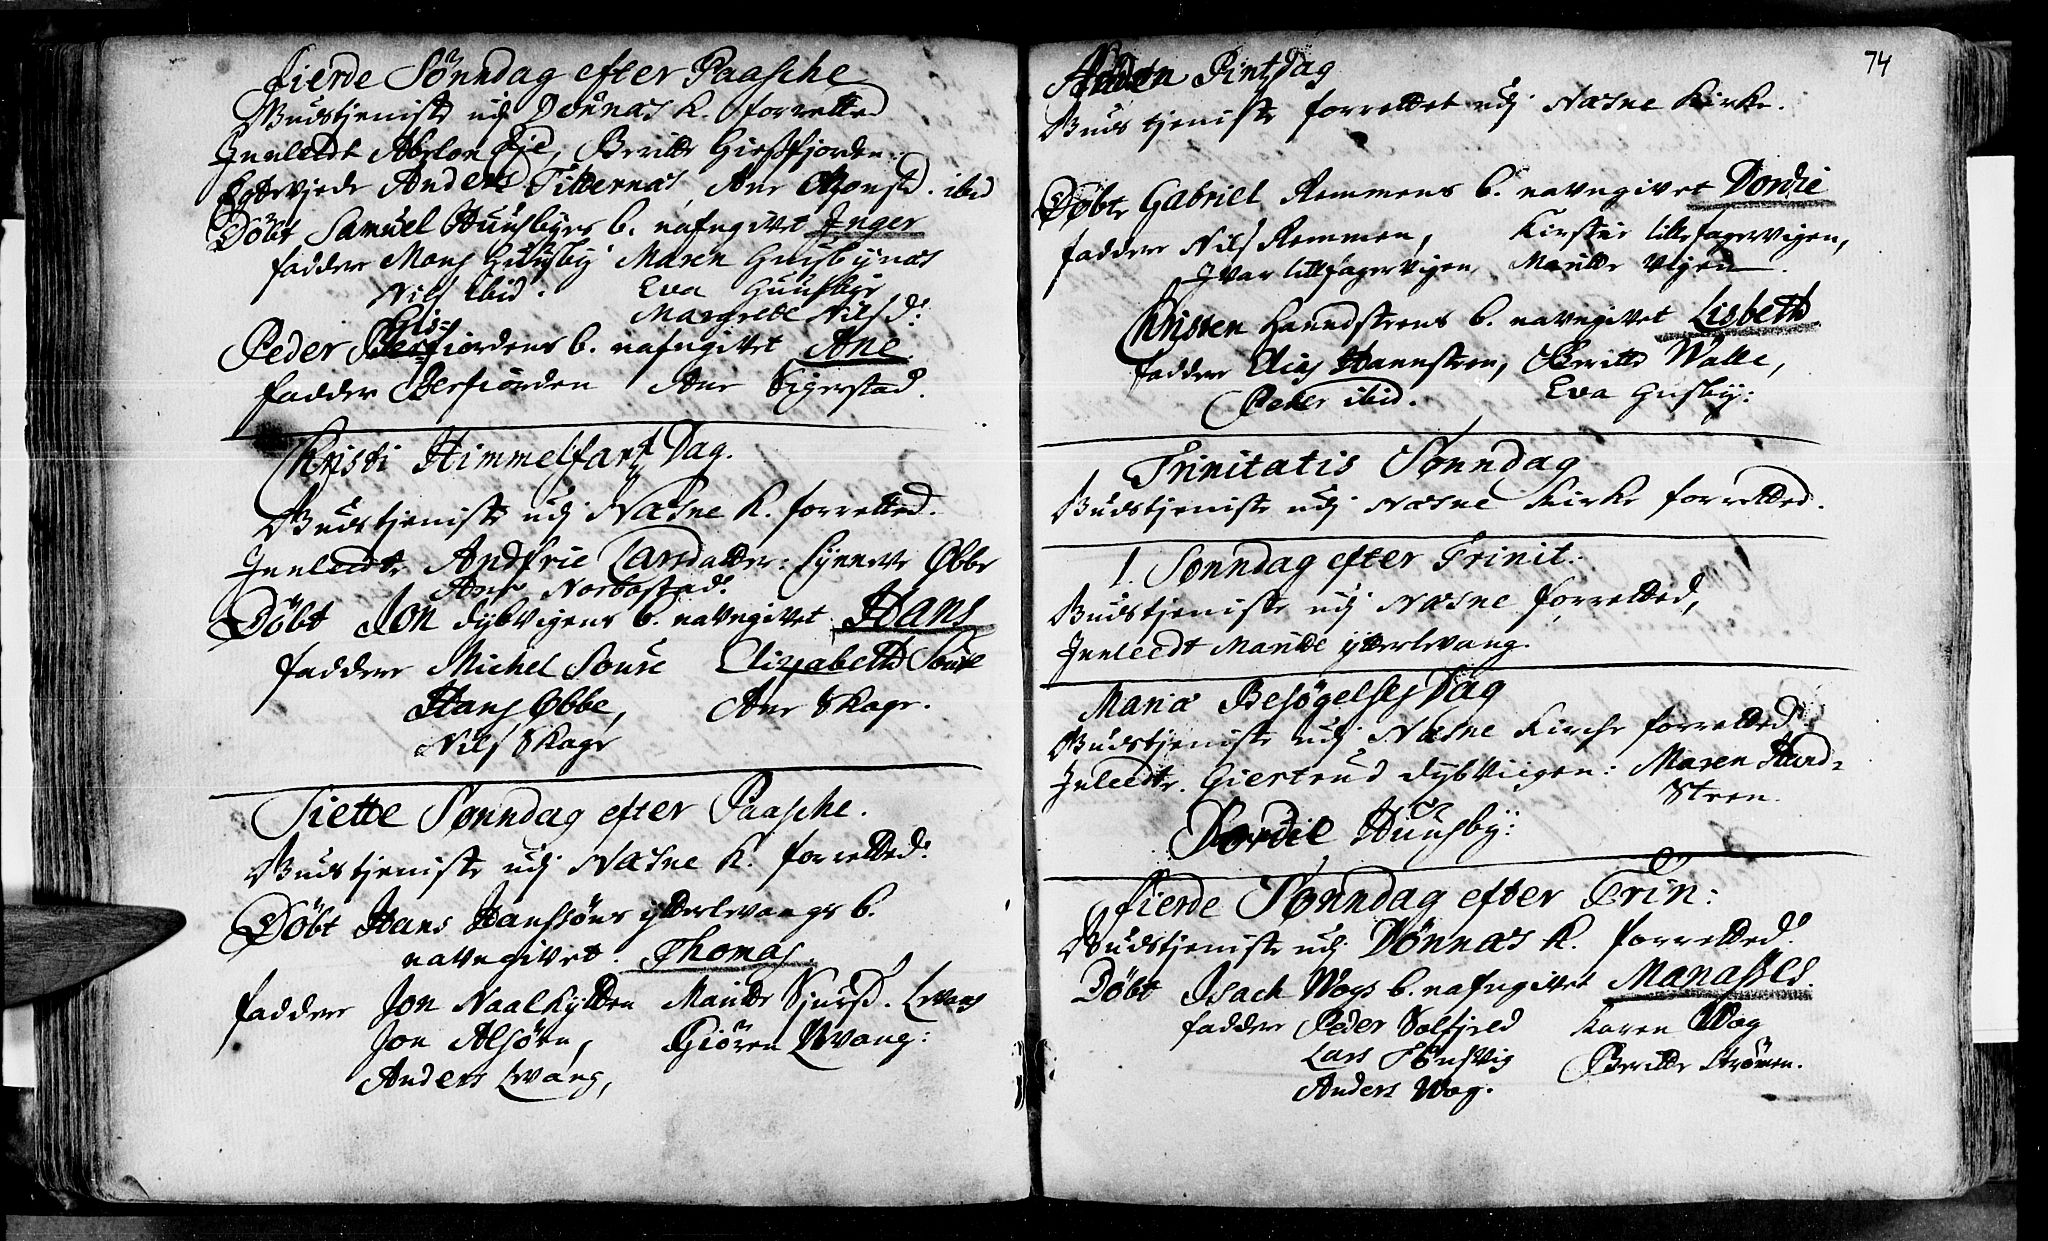 Fierde Sönndag efter Paasche
Gudstjeniste udj Dönnas K. forretted
Innleedt Abelon Eje, Beritte Giessfjorden.
Egteviede Anders Titternæs, Ane Monsd. ibid
Döbt Samuel Huusbyes b. nafngivet Inger
faddere Mons Huusby Maren Husbynæs
Nils ibid. Eva Huusbye
Margrete Nilsd:
Peder fiordens b. nafngivet Ane
faddere Berfiorden Ane Sigerstad.
Christi Himmelfartz Dag.
Gudstjeniste udj Næsne K. forretted.
Innleedte Andfrie Larsdatter: Synneve Øbbe
Ane Norbostad.
Döbt Jon Dybvigens b. navngivet Hans
faddere Michel Soure Elizabeth Soure
Hans Øbbe, Ane Skage.
Nils Skage
Siette Sønndag efter Paasche.
Gudstjeniste udj Næsne K. forretted.
Döbt Hans Hanssöns ytterlevangs b.
navngivet. Thomas.
faddere Jon Naalhytten Maritte Sjursd. Levang
Jon Alsöen, Giören Levang:
Anders Levang,
74
Anden Pintzdag
Gudstjeniste forrettet udj Næsne Kirke.
Döbte Gabriel Remmens b. navngivet Dordie
faddere Nils Remmen, Kirsten lille fagervigen,
Ivar lillfagervigen, Maritte Vigen.
Christen Hanndstrens b. navngivet Lisbeth
faddere Elias Hannstren, Beritte Walle,
Peder ibid. Eva Husby:
Trinitatis Sønndag
Gudstjeniste udj Næsne Kirke forretted.
1. Sønndag efter Trinit:
Gudstjeniste udj Næsne forretted,
Innleedt Maritte ytterlevang.
Maria Besøgelses Dag
Gudstjeniste udj Næsne Kirche forretted.
Inleedte. Giertrud Dybvigen: Maren Hand-
Stren.
Dordie Huusby:
Fierde Sønndag efter Trin:
Gudstjeniste udj Dönnæs K. forretted.
Döbt Isach Wogs b. nafngivet Manasses.
faddere Peder Solfjeld Karen Wog
Lars Hensvig Beritte Strömen.
Anders Wog.